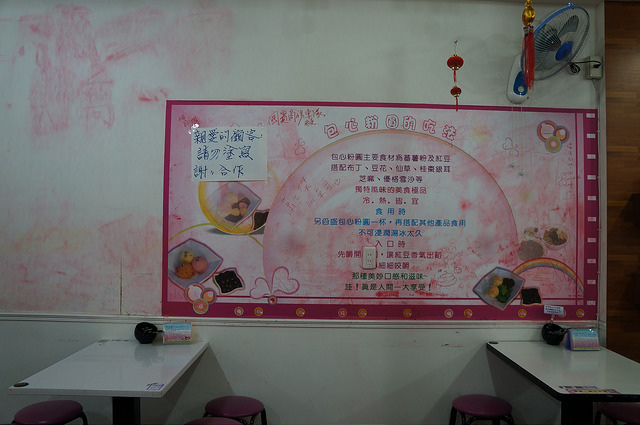 親愛的顧客
請勿塗寫
謝謝合作
包心粉圓的吃法
包心粉圓主要食材為蕃薯粉及紅豆
搭配布丁、豆花、仙草、桂棗銀耳
芝麻、優格雪沙等
獨特風味的美食極品
冷、熱、皆、宜
食用時
另自盛包心粉圓一杯，再搭配其他產品食用
不可浸潤湯冰太久
入口時
先嚼開，讓紅豆香氣出韻
細細咬嚼
那種美妙口感和滋味~
哇！真是人間一大享受！